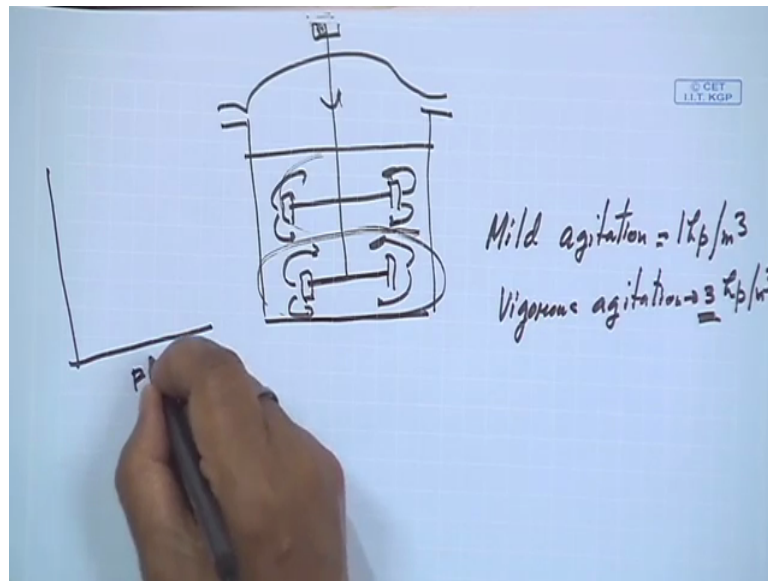 © CET
I.I.T. KGP
Mild agitation = 1 hp/m³
Vigorous agitation → 3 hp/m³